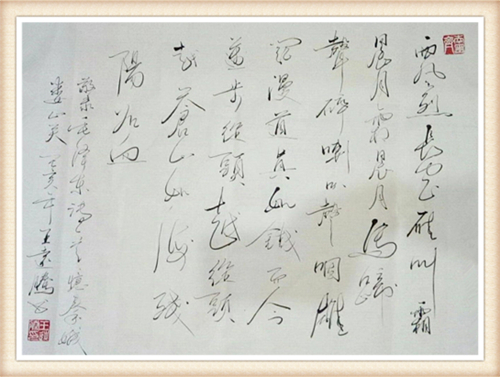 西風烈長空雁叫霜
晨月霜晨月馬蹄
聲碎喇叭聲咽雄
關漫道真如鐵而今
邁步從頭越從頭
越蒼山如海殘
陽如血
敬录毛澤東詞憶秦娥
娄山关亥年王騰书